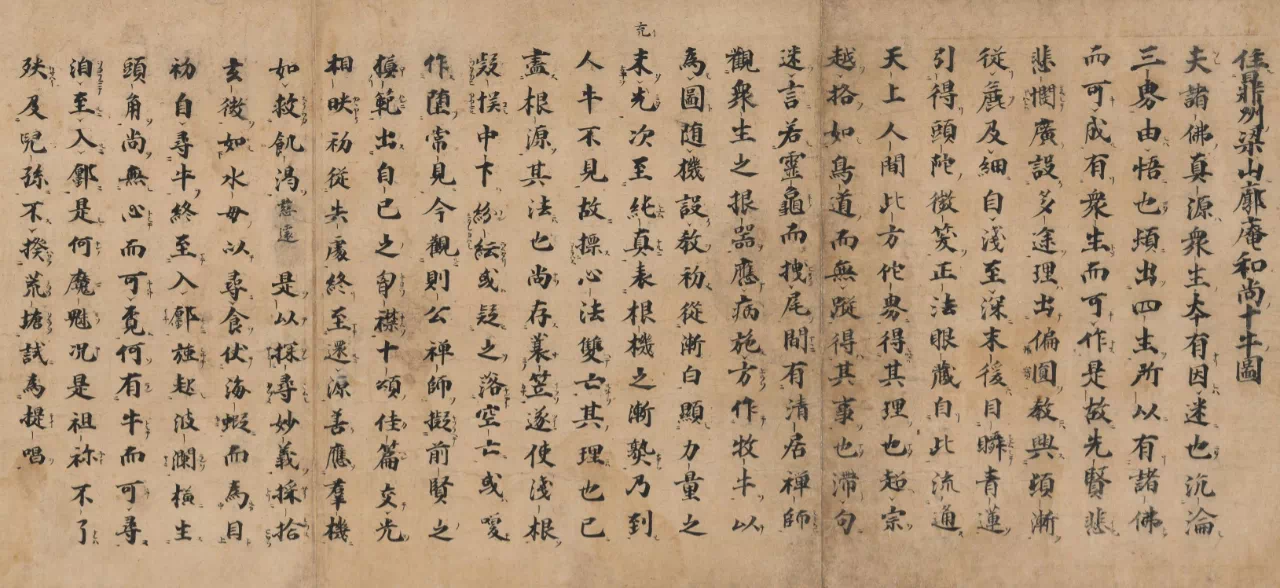 住鼎州梁山廓庵和尚十牛圖
夫諸佛真源衆生本有因迷也沉淪
三界由悟也頓出四生所以有諸佛
而可成有衆生而可作是故先賢悲
悲憫廣設多途理出偏圓教興頓漸
從麁及細自淺至深末後目瞬青蓮
引得頭陀微笑正法眼藏自此流通
天上人間此方佗界得其理也超宗
越格如鳥道而無蹤得其事也滯句
迷言若靈龜而拽尾間有清居禅師
觀衆生之根器應病施方作牧牛以
為圖随機設教初從漸白顯力量之
充
未光次至純真表根機之漸熟乃到
人牛不見故標心法雙亡其理也已
盡根源其法也尚存蓑笠遂使淺根
疑悮中下紛紜或疑之落空亡或喚
作墮常見今觀則公禅師擬前賢之
模範出自己之胷襟十頌佳篇交光
相映初從失處終至還源善應羣機
如救飢渴慈遠是以探尋妙義採拾
玄微如水母以尋食依海蝦而為目
初自尋牛終至入鄽強起波瀾橫生
頭角尚無心而可覓何有牛而可尋
洎至入鄽是何魔魅况是祖祢不了
殃及兒孫不揆荒塘試為提唱